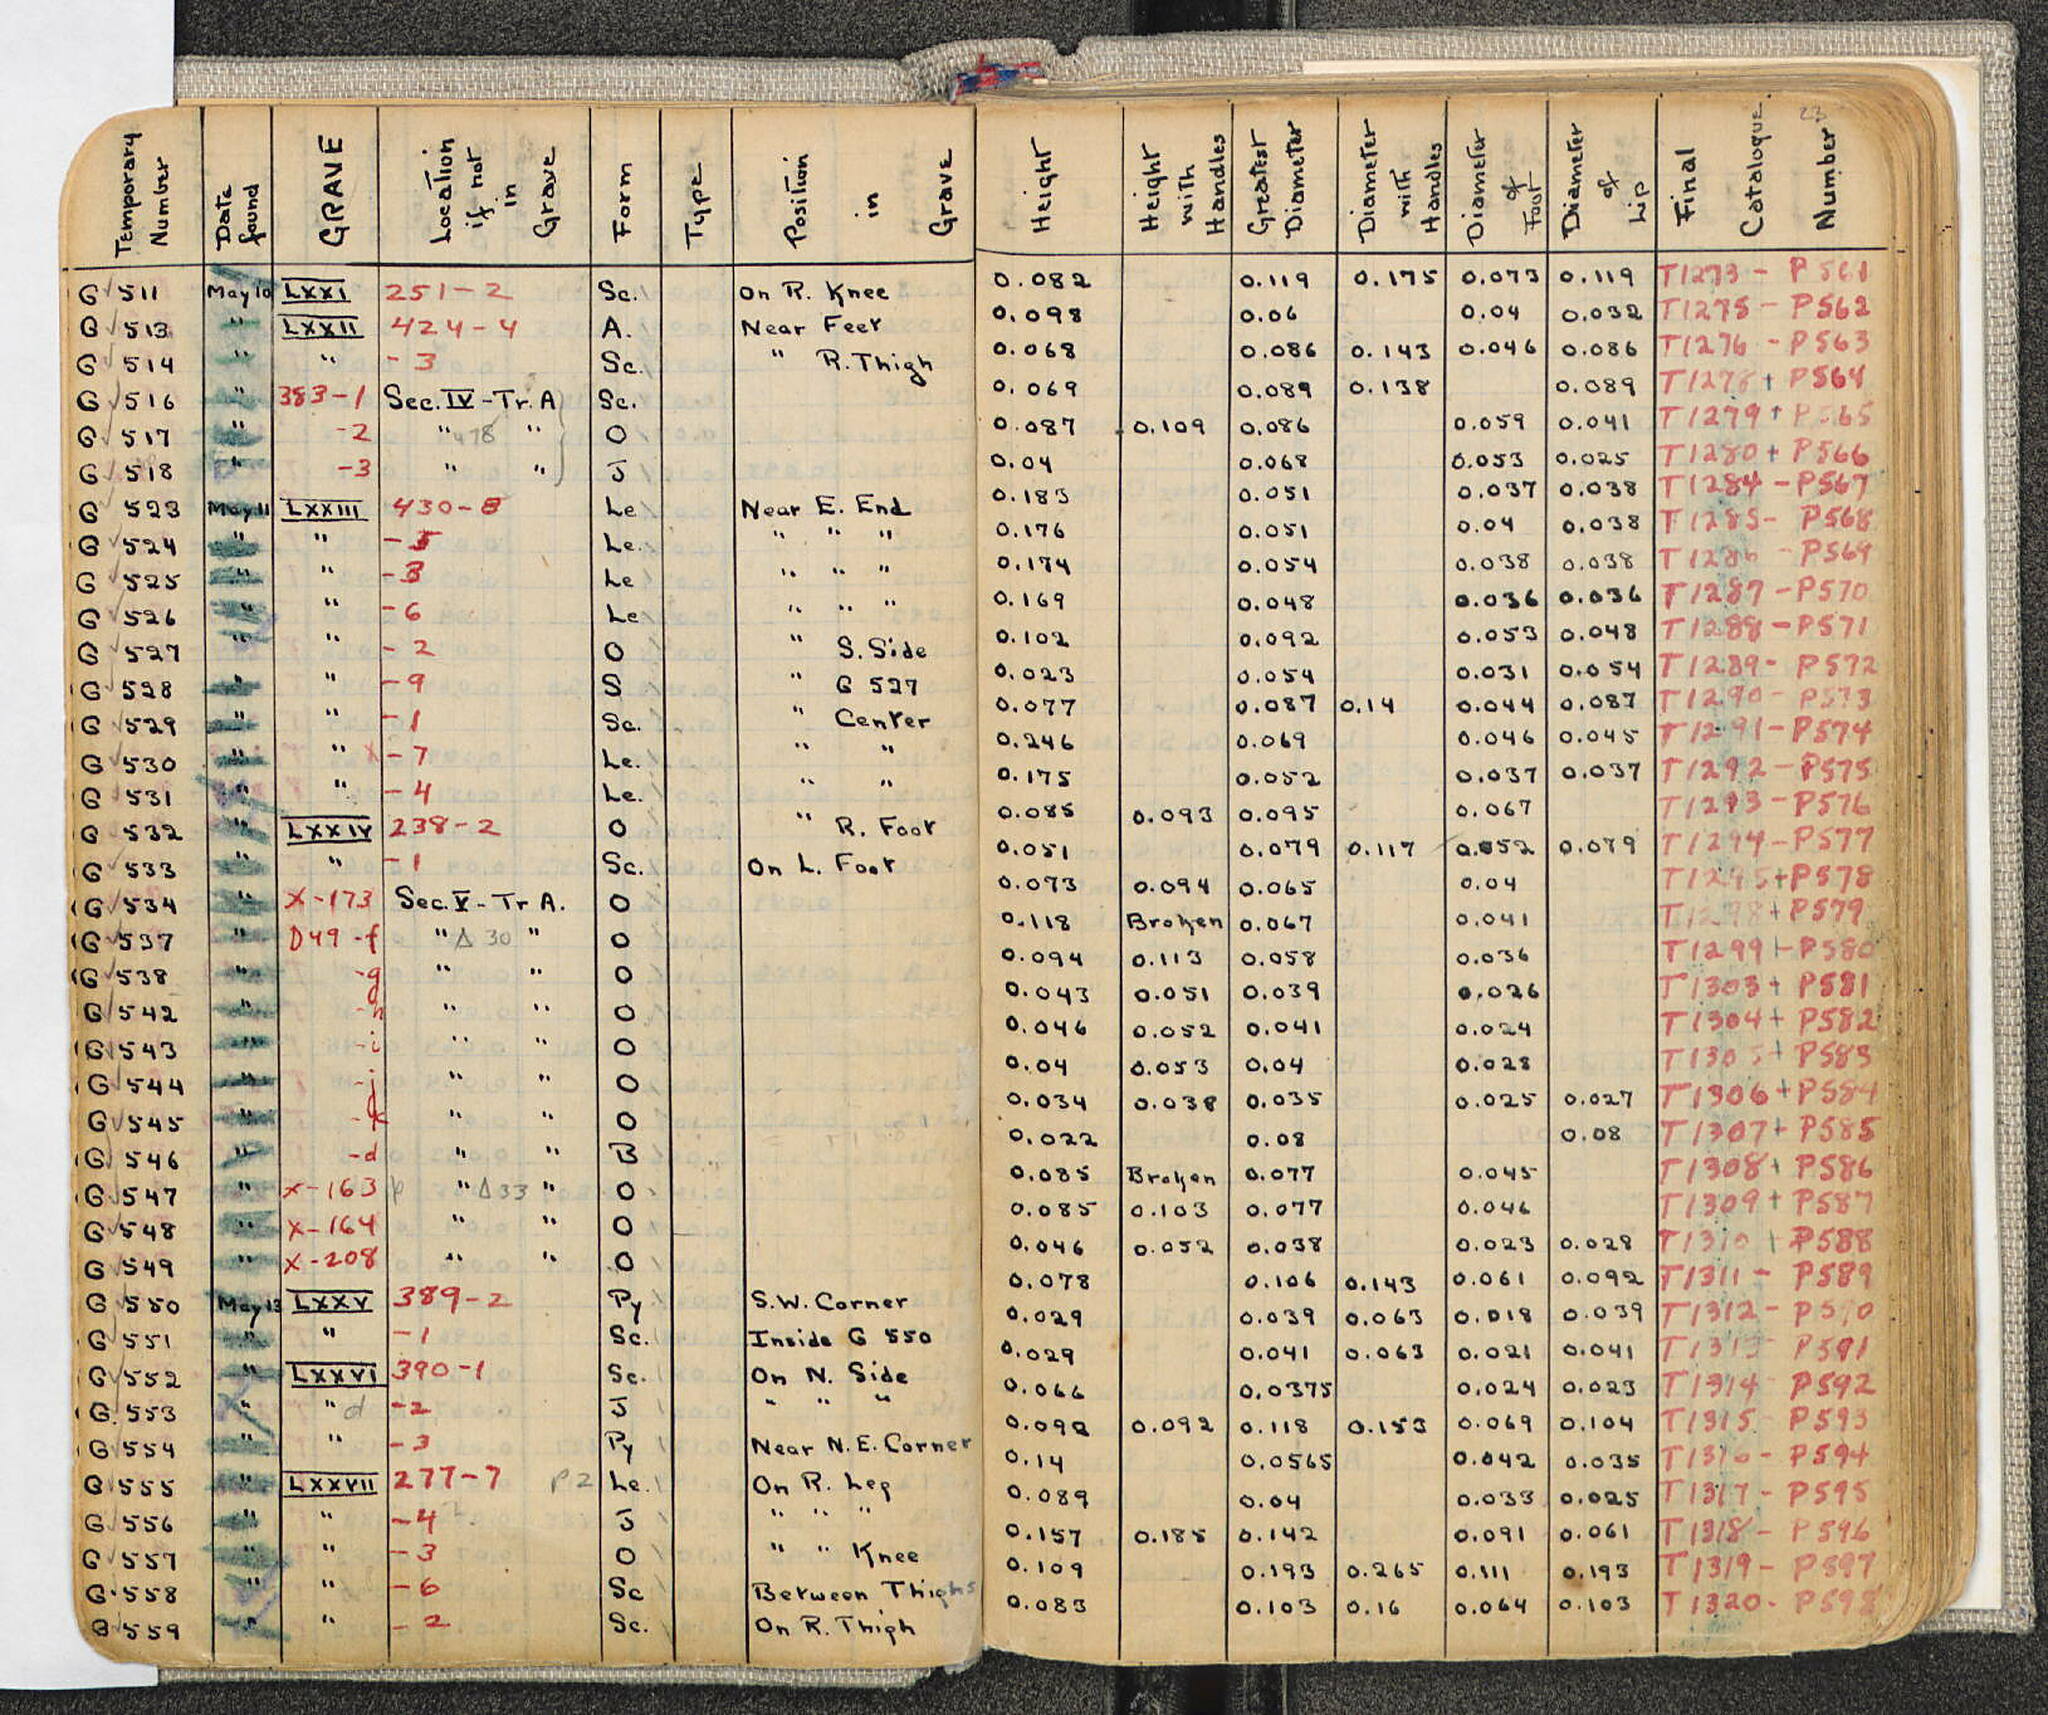 Temporary Number Date found GRAVE Location if not in Grave Form Type Position in Grave Height Height with Handles Greatest Diameter Diameter with Handles Diameter of Foot Diameter of Lip Final Catalogue Number
23
G 511 May 10 LXXI 251-2 Sc. On R. Knee 0.082 0.119 0.175 0.073 0.119 T1273 - P561
G 513 " LXXII 424-4 A. Near Feet 0.098 0.06 0.04 0.032 T1275 - P562
G 514 " " -3 Sc. " R. Thigh 0.068 0.086 0.143 0.046 0.086 T1276 - P563
G 516 " 383-1 Sec. IV - Tr. A Sc. 0.069 0.089 0.138 0.089 T1278 + P564
G 517 " -2 " 478 " O 0.087 0.109 0.086 0.059 0.041 T1279 + P565
G 518 " -3 " " J 0.04 0.068 0.053 0.025 T1280 + P566
G 523 May 11 LXXIII 430-8 Le Near E. End 0.183 0.051 0.037 0.038 T1284 - P567
G 524 " " -5 Le. " " " 0.176 0.051 0.04 0.038 T1285 - P568
G 525 " " -3 Le " " " 0.174 0.054 0.038 0.038 T1286 - P569
G 526 " " -6 Le " " " 0.169 0.048 0.036 0.036 T1287 - P570
G 527 " " -2 O " S. Side 0.102 0.092 0.053 0.048 T1288 - P571
G 528 " " -9 S " G 527 0.023 0.054 0.031 0.054 T1289 - P572
G 529 " " -1 Sc. " Center 0.077 0.087 0.14 0.044 0.087 T1290 - P573
G 530 " " x -7 Le. " " 0.246 0.069 0.046 0.045 T1291 - P574
G 531 " " -4 Le. " " 0.175 0.052 0.037 0.037 T1292 - P575
G 532 " LXXIV 238-2 O " R. Foot 0.085 0.093 0.095 0.067 T1293 - P576
G 533 " " -1 Sc. On L. Foot 0.051 0.079 0.117 0.052 0.079 T1294 - P577
G 534 " X-173 Sec. V - Tr A. O 0.073 0.094 0.065 0.04 T1295 + P578
G 537 " D49 -f " Δ 30 " O 0.118 Broken 0.067 0.041 T1298 + P579
G 538 " -g " " O 0.094 0.113 0.058 0.036 T1299 + P580
G 542 " -h " " O 0.043 0.051 0.039 0.026 T1303 + P581
G 543 " -i " " O 0.046 0.052 0.041 0.024 T1304 + P582
G 544 " -j " " O 0.04 0.053 0.04 0.028 T1305 + P583
G 545 " -k " " O 0.034 0.038 0.035 0.025 0.027 T1306 + P584
G 546 " -d " " B 0.022 0.08 0.08 T1307 + P585
G 547 " X-163 " Δ33 " O 0.085 Broken 0.077 0.045 T1308 + P586
G 548 " X-164 " " O 0.085 0.103 0.077 0.046 T1309 + P587
G 549 " X-208 " " O 0.046 0.052 0.038 0.023 0.028 T1310 + P588
G 550 May 13 LXXV 389-2 Py S.W. Corner 0.078 0.106 0.143 0.061 0.092 T1311 - P589
G 551 " " -1 Sc. Inside G 550 0.029 0.039 0.063 0.018 0.039 T1312 - P590
G 552 " LXXVI 390-1 Sc. On N. Side 0.029 0.041 0.063 0.021 0.041 T1313 - P591
G. 553 " " d -2 J " " " 0.066 0.0375 0.024 0.023 T1314 - P592
G 554 " " -3 Py Near N.E. Corner 0.092 0.092 0.118 0.153 0.069 0.104 T1315 - P593
G 555 " LXXVII 277-7 P2 Le. On R. Leg 0.14 0.0565 0.042 0.035 T1316 - P594
G 556 " " -4 J " " " 0.089 0.04 0.033 0.025 T1317 - P595
G 557 " " -3 O " " Knee 0.157 0.185 0.142 0.091 0.061 T1318 - P596
G. 558 " " -6 Sc Between Thighs 0.109 0.193 0.265 0.111 0.193 T1319 - P597
G 559 " " -2 Sc. On R. Thigh 0.083 0.103 0.16 0.064 0.103 T1320 - P598